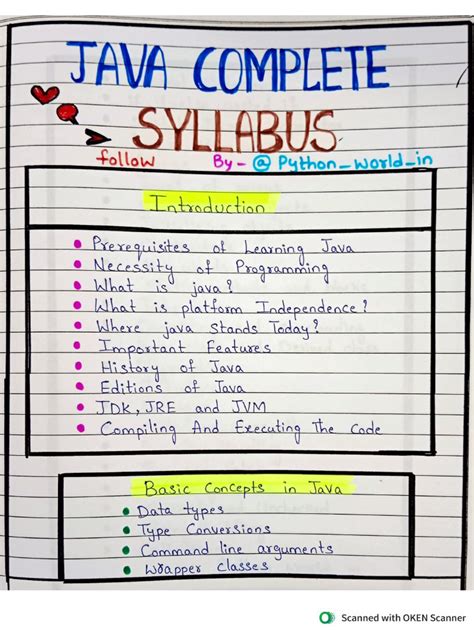 JAVA COMPLETE
SYLLABUS
follow By - @ Python_world_in
Introduction
• Prerequisites of Learning Java
• Necessity of Programming
• What is java?
• What is platform Independence?
• Where java stands Today?
• Important Features
• History of Java
• Editions of Java
• JDK, JRE and JVM
• Compiling And Executing The Code
Basic Concepts in Java
• Data types
• Type Conversions
• Command line arguments
• Wrapper classes
Scanned with OKEN Scanner